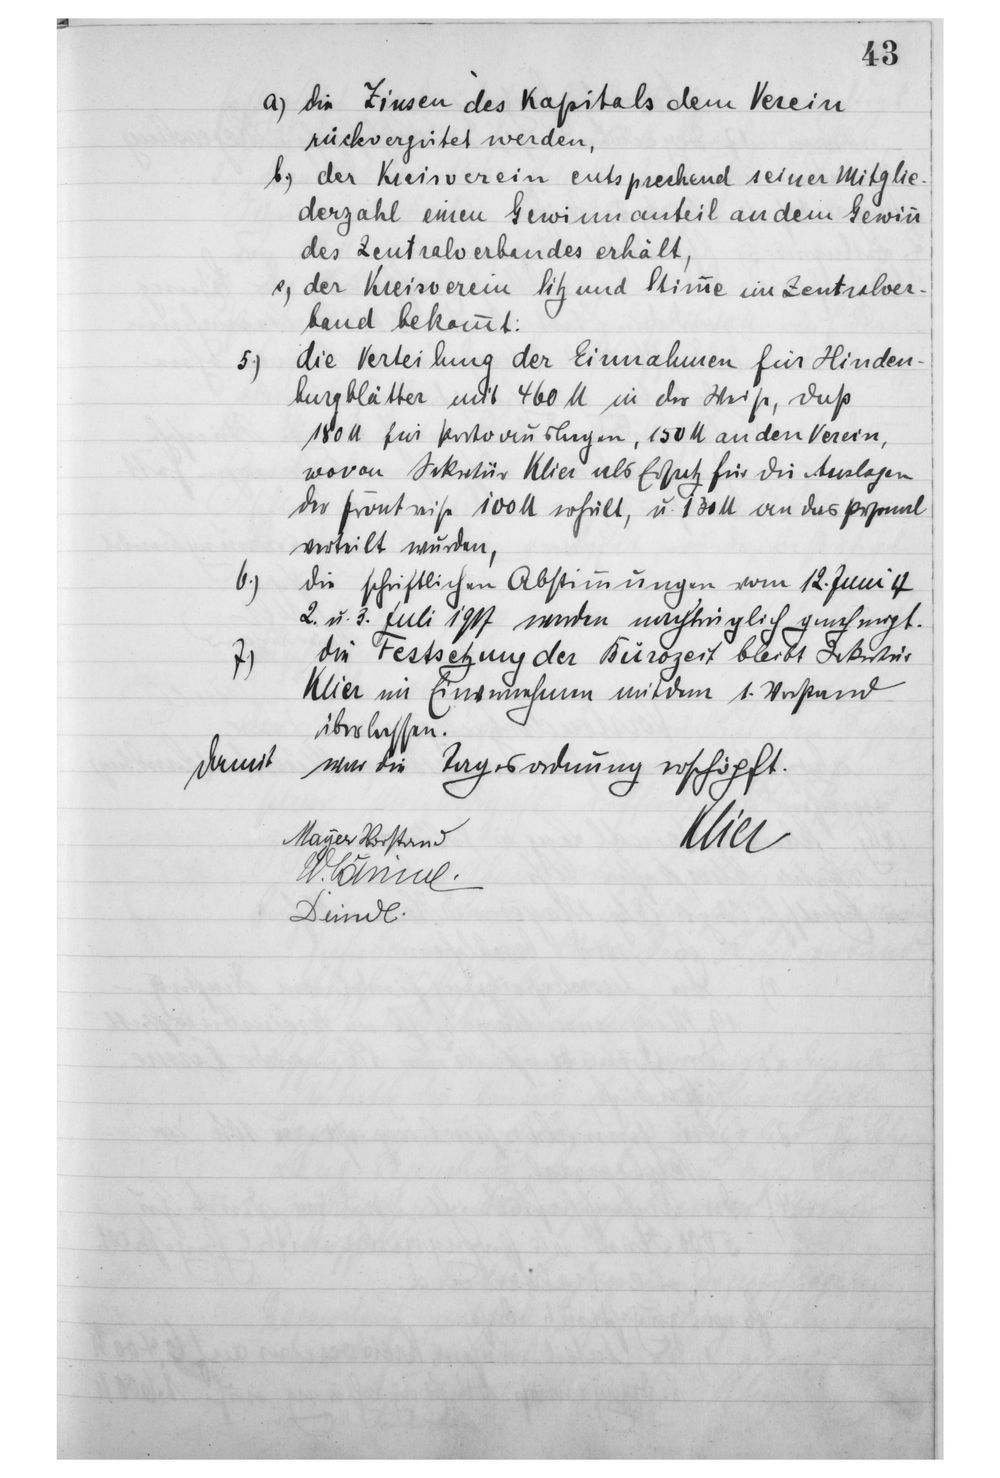 43
a) die Zinsen des Kapitals dem Verein
rückvergütet werden,
b.) der Kreisverein entsprechend seiner Mitglie-
derzahl einen Gewinnanteil an dem Gewiñ
des Zentralverbandes erhält,
c) der Kreisverein Sitz und Stim̄e im Zentralver-
band bekom̄t:
5.) die Verteilung der Einnahmen für Hinden-
burgblätter mit 460 M in der Weise, daß
180 M für Portoauslagen, 150 M an den Verein,
wovon Sekretär Klier als Ersatz für die Auslagen
der Frontreise 100 M erhält, u. 130 M an das Personal
verteilt wurden,
6.) die schriftlichen Abstim̄ungen vom 12. Juni
2. u. 3. Juli 1917 werden nachträglich genehmigt.
7.) die Festsetzung der Bürozeit bleibt Sekretär
Klier im Einvernehmen mit dem 1. Vorstand
überlassen.
Damit war die Tagesordnung erschöpft.
Klier
Mayer Vorstand
Deindl.